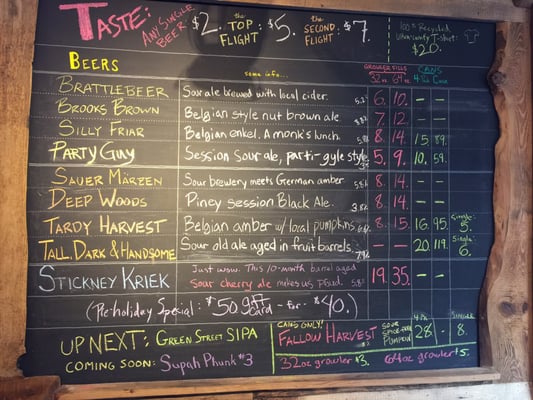 TASTE: ANY SINGLE BEER: $2. the TOP FLIGHT: $5. the SECOND FLIGHT: $7. 100% Recycled T-shirt: $20.
BEERS some info... GROWLER FILLS 32oz 64oz CANS 4pk Case
BRATTLEBEER Sour ale brewed with local cider. 6. 10. — —
BROOKS BROWN Belgian style nut brown ale. 7. 12. — —
SILLY FRIAR Belgian enkel. A monk's lunch. 8. 14. 15. 89.
PARTY GUY Session Sour ale, parti-gyle style. 5. 9. 10. 59.
SAUER MÄRZEN Sour brewery meets German amber. 8. 14. — —
DEEP WOODS Piney session Black Ale. 8. 14. — —
TARDY HARVEST Belgian amber w/ local pumpkins. 8. 15. 16. 95. Single: 5.
TALL, DARK & HANDSOME Sour old ale aged in fruit barrels. — — 20. 119. Single: 6.
STICKNEY KRIEK Just wow. This 10-month barrel aged sour cherry ale makes us proud. 19. 35. — —
(Pre-holiday Special: $50 gift card - for - $40.)
UP NEXT: GREEN STREET SIPA
COMING SOON: Supah Phunk #3
CANS ONLY! FALLOW HARVEST SOUR PUMPKIN 4pk 28. - SINGLE 8.
32oz growler $3. 64oz growler $5.